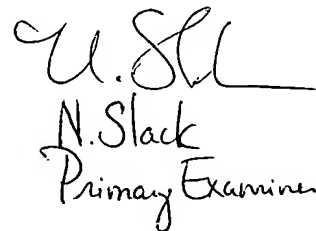 N. Slack
N. Slack
Primary Examiner